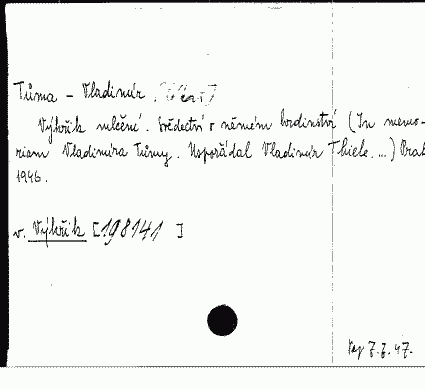 Tůma - Vladimír
Výkřik mlčení. Svědectví o němém hrdinství (In memo-
riam Vladimíra Tůmy. Uspořádal Vladimír Thiele...)
1946.
v. Výkřik [198141 ]
7.7.47.